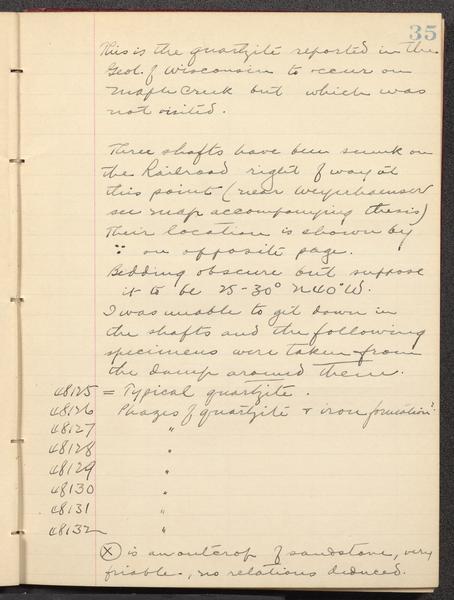 35
This is the quartzite reported in the
Geol. of Wisconsin to occur on
Maple Creek but which was
not visited.
Three shafts have been sunk on
the Railroad right of way at
this point (near Weyerhaeuser
see map accompanying thesis)
Their location is shown by
:: on opposite page.
Bedding obscure but suppose
it to be 25-30° N40°W.
I was unable to git down in
the shafts and the following
specimens were taken from
the damp around them.
48125 = Typical quartzite.
48126 Phazes of quartzite & iron formation?
48127 "
48128 "
48129 "
48130 "
48131 "
48132 "
(X) is an outcrop of sandstone, very
friable., no relations deduced.